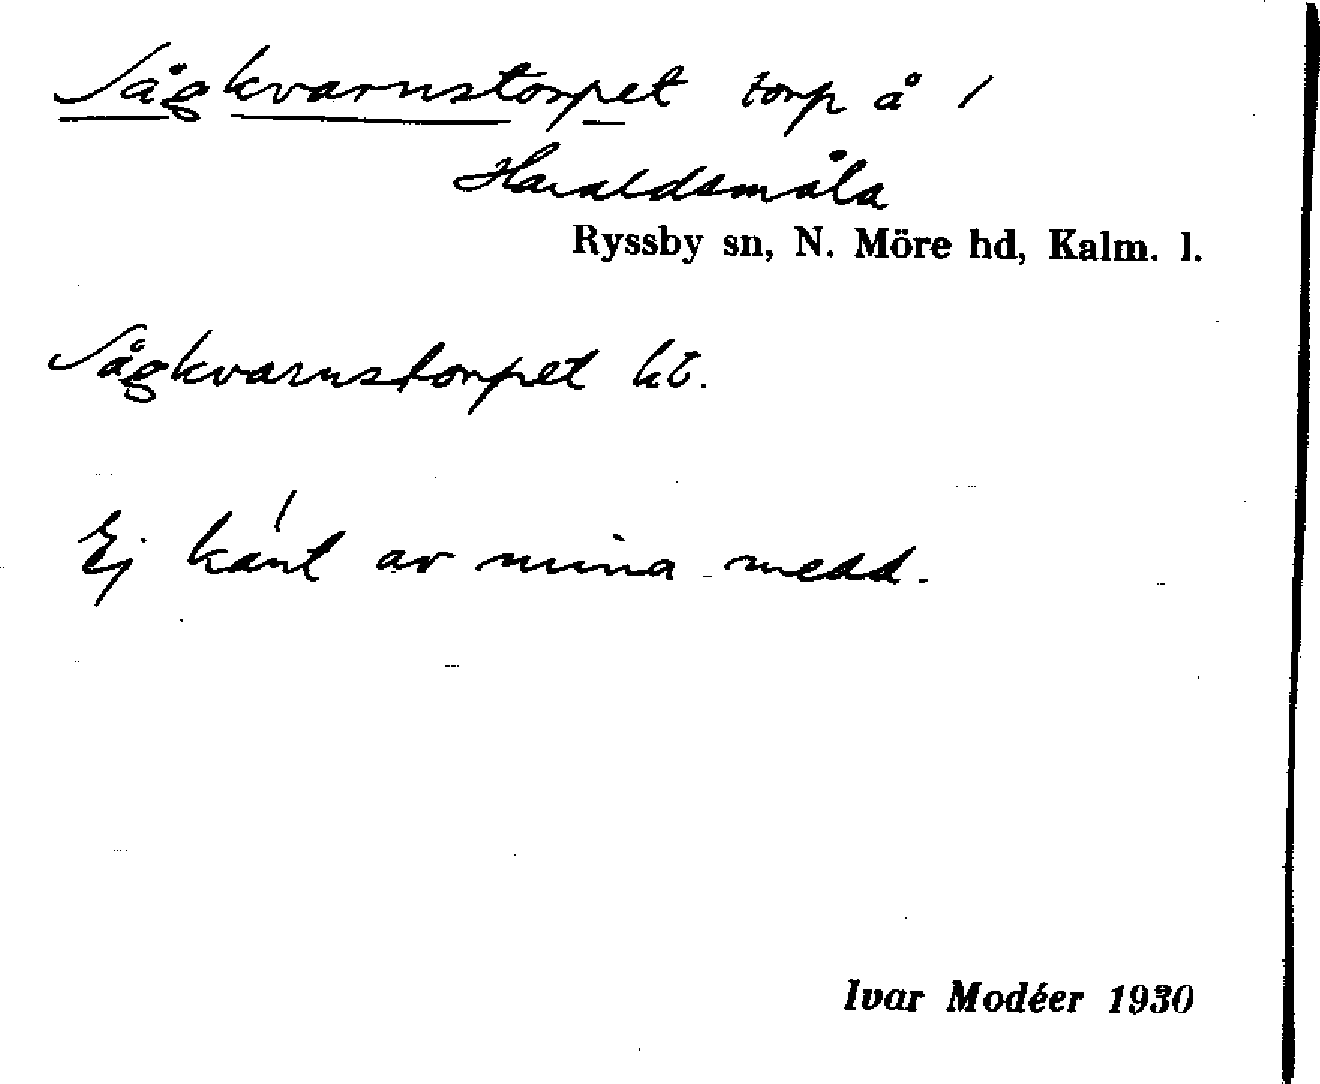 Sågkvarnstorpet torp å 1
Haraldsmåla
Ryssby sn, N. Möre hd, Kalm. l.
Sågkvarnstorpet kt.
Ej känt av mina medd.
Ivar Modéer 1930